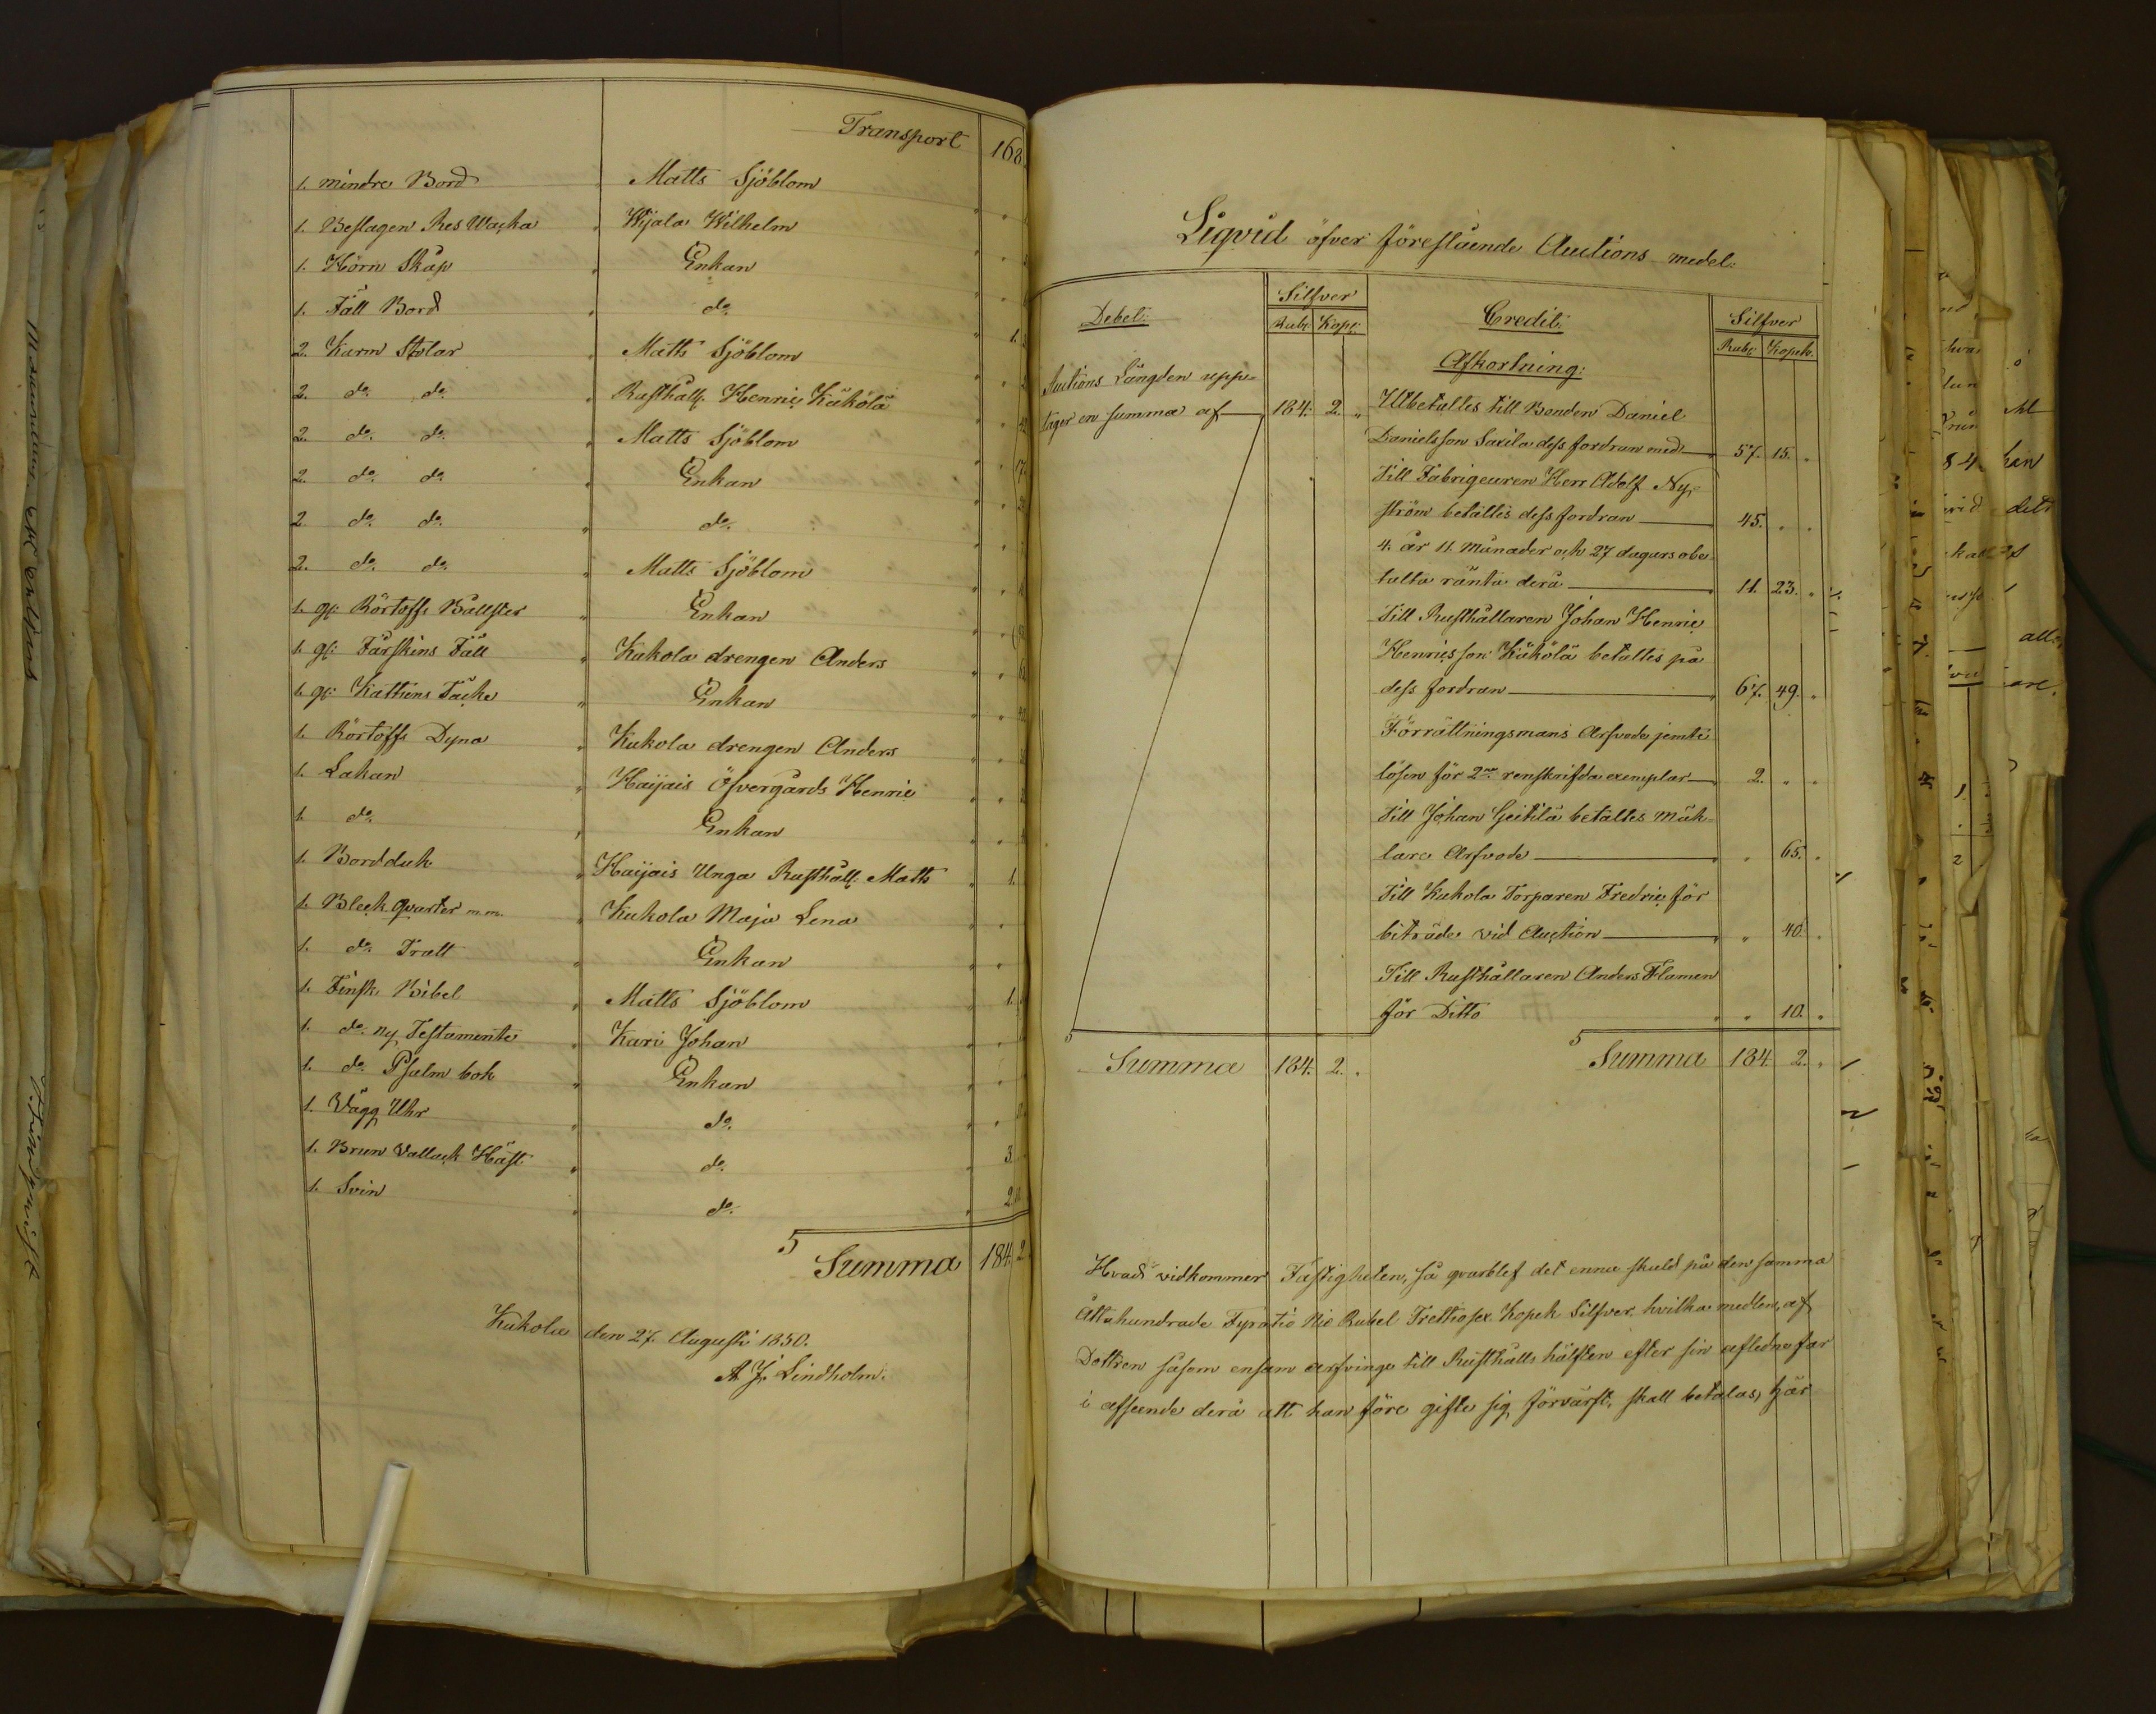 Transport 168
1. mindre Bord " Matts Sjöblom
1. Beslagen Res Wacka " Wijala Wilhelm
1. Hörn Skåp " Enkan
1. Fäll Bord do. 1.
2. Karm Stolar " Matts Sjöblom
2. do. do. " Rusthåll. Henric Kukola
2. do. do. " Matts Sjöblom
2. do. do. " Enkan
2. do. do. " do.
2. do. do. " Matts Sjöblom
1. gl: Bolster " Enkan
1. gl: Fårskins Fäll " Kukola drengen Anders
1. gl: Kattuns Täcke " Enkan
1. Dyna " Kukola drengen Anders
1. Lakan " Haijais Öfvergårds Henric
1. do. " Enkan
1. Bordduk " Haijais Unga Rusthåll. Matts " 1.
1. Bleck Qvarter m.m. " Kukola Maja Lena
1. do. Tratt " Enkan
1. Finsk Bibel " Matts Sjöblom 1.
1. do. ny Testamente " Kari Johan
1. do. Psalm bok " Enkan
1. Vägg Uhr " do.
1. Brun Vallack Häst " do. 3.
1. Svin " do. 2.
Summa 184. 2
Kukola den 27. Augusti 1850.
A. J. Lindholm.
Liqvid öfver förestående Auctions medel.
Debet: Silfver Credit: Silfver
Rub: Kop: Rub: Kopek.
Afkortning:
Auctions Längden upp-
tager en summa af 184. 2. "
Utbetaltes till Bonden Daniel
Danielsson Saxila dess fordran med 57. 15. "
Till Fabrigeuren Herr Adolf Ny-
ström betaltes dess fordran 45. " "
4. år 11. Månader och 27 dagars obe-
talta ränta derå 11. 23. "
Till Rusthållaren Johan Henric
Henricsson Kukola betaltes på
dess fordran 67. 49. "
Förrättningsmans Arfvode jemte
lösen för 2ne renskrifda exemplar 2. " "
Till Johan Seitilä betaltes Mäk-
lare Arfvode " 65. "
Till Kukola Torparen Fredric för
biträde vid Auction " 40. "
Till Rusthållaren Anders Flamen
för Ditto " 10. "
Summa 184. 2. " Summa 184. 2. "
Hvad vidkommer Fastigheten, så qvarblef det ennu skuld på den samma
Åttahundrade Fyratio Nio Rubel Trettiosex Kopek Silfver, hvilka medlen, af
Dottren såsom ensam arfvinge till Rusthålls hälften efter sin aflednefar
i afseende derå att han före gifte sig förvärft, skall betalas, här